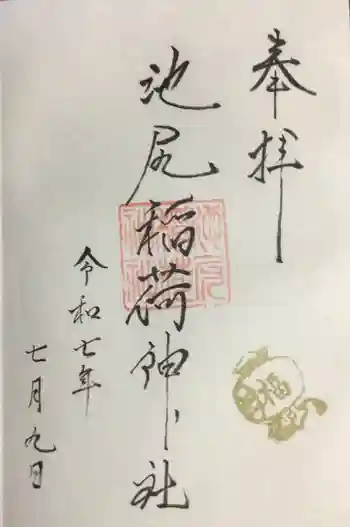 奉拝
池尻稲荷神社
令和七年
七月九日